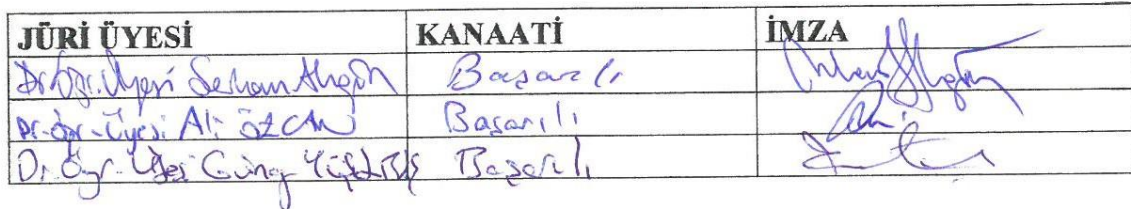 JÜRİ ÜYESİ KANAATİ İMZA
Dr. Öğr. Üyesi Serhan Başarılı
Dr. Öğr. Üyesi Ali ÖZCAN Başarılı
Dr. Öğr. Üyesi Başarılı